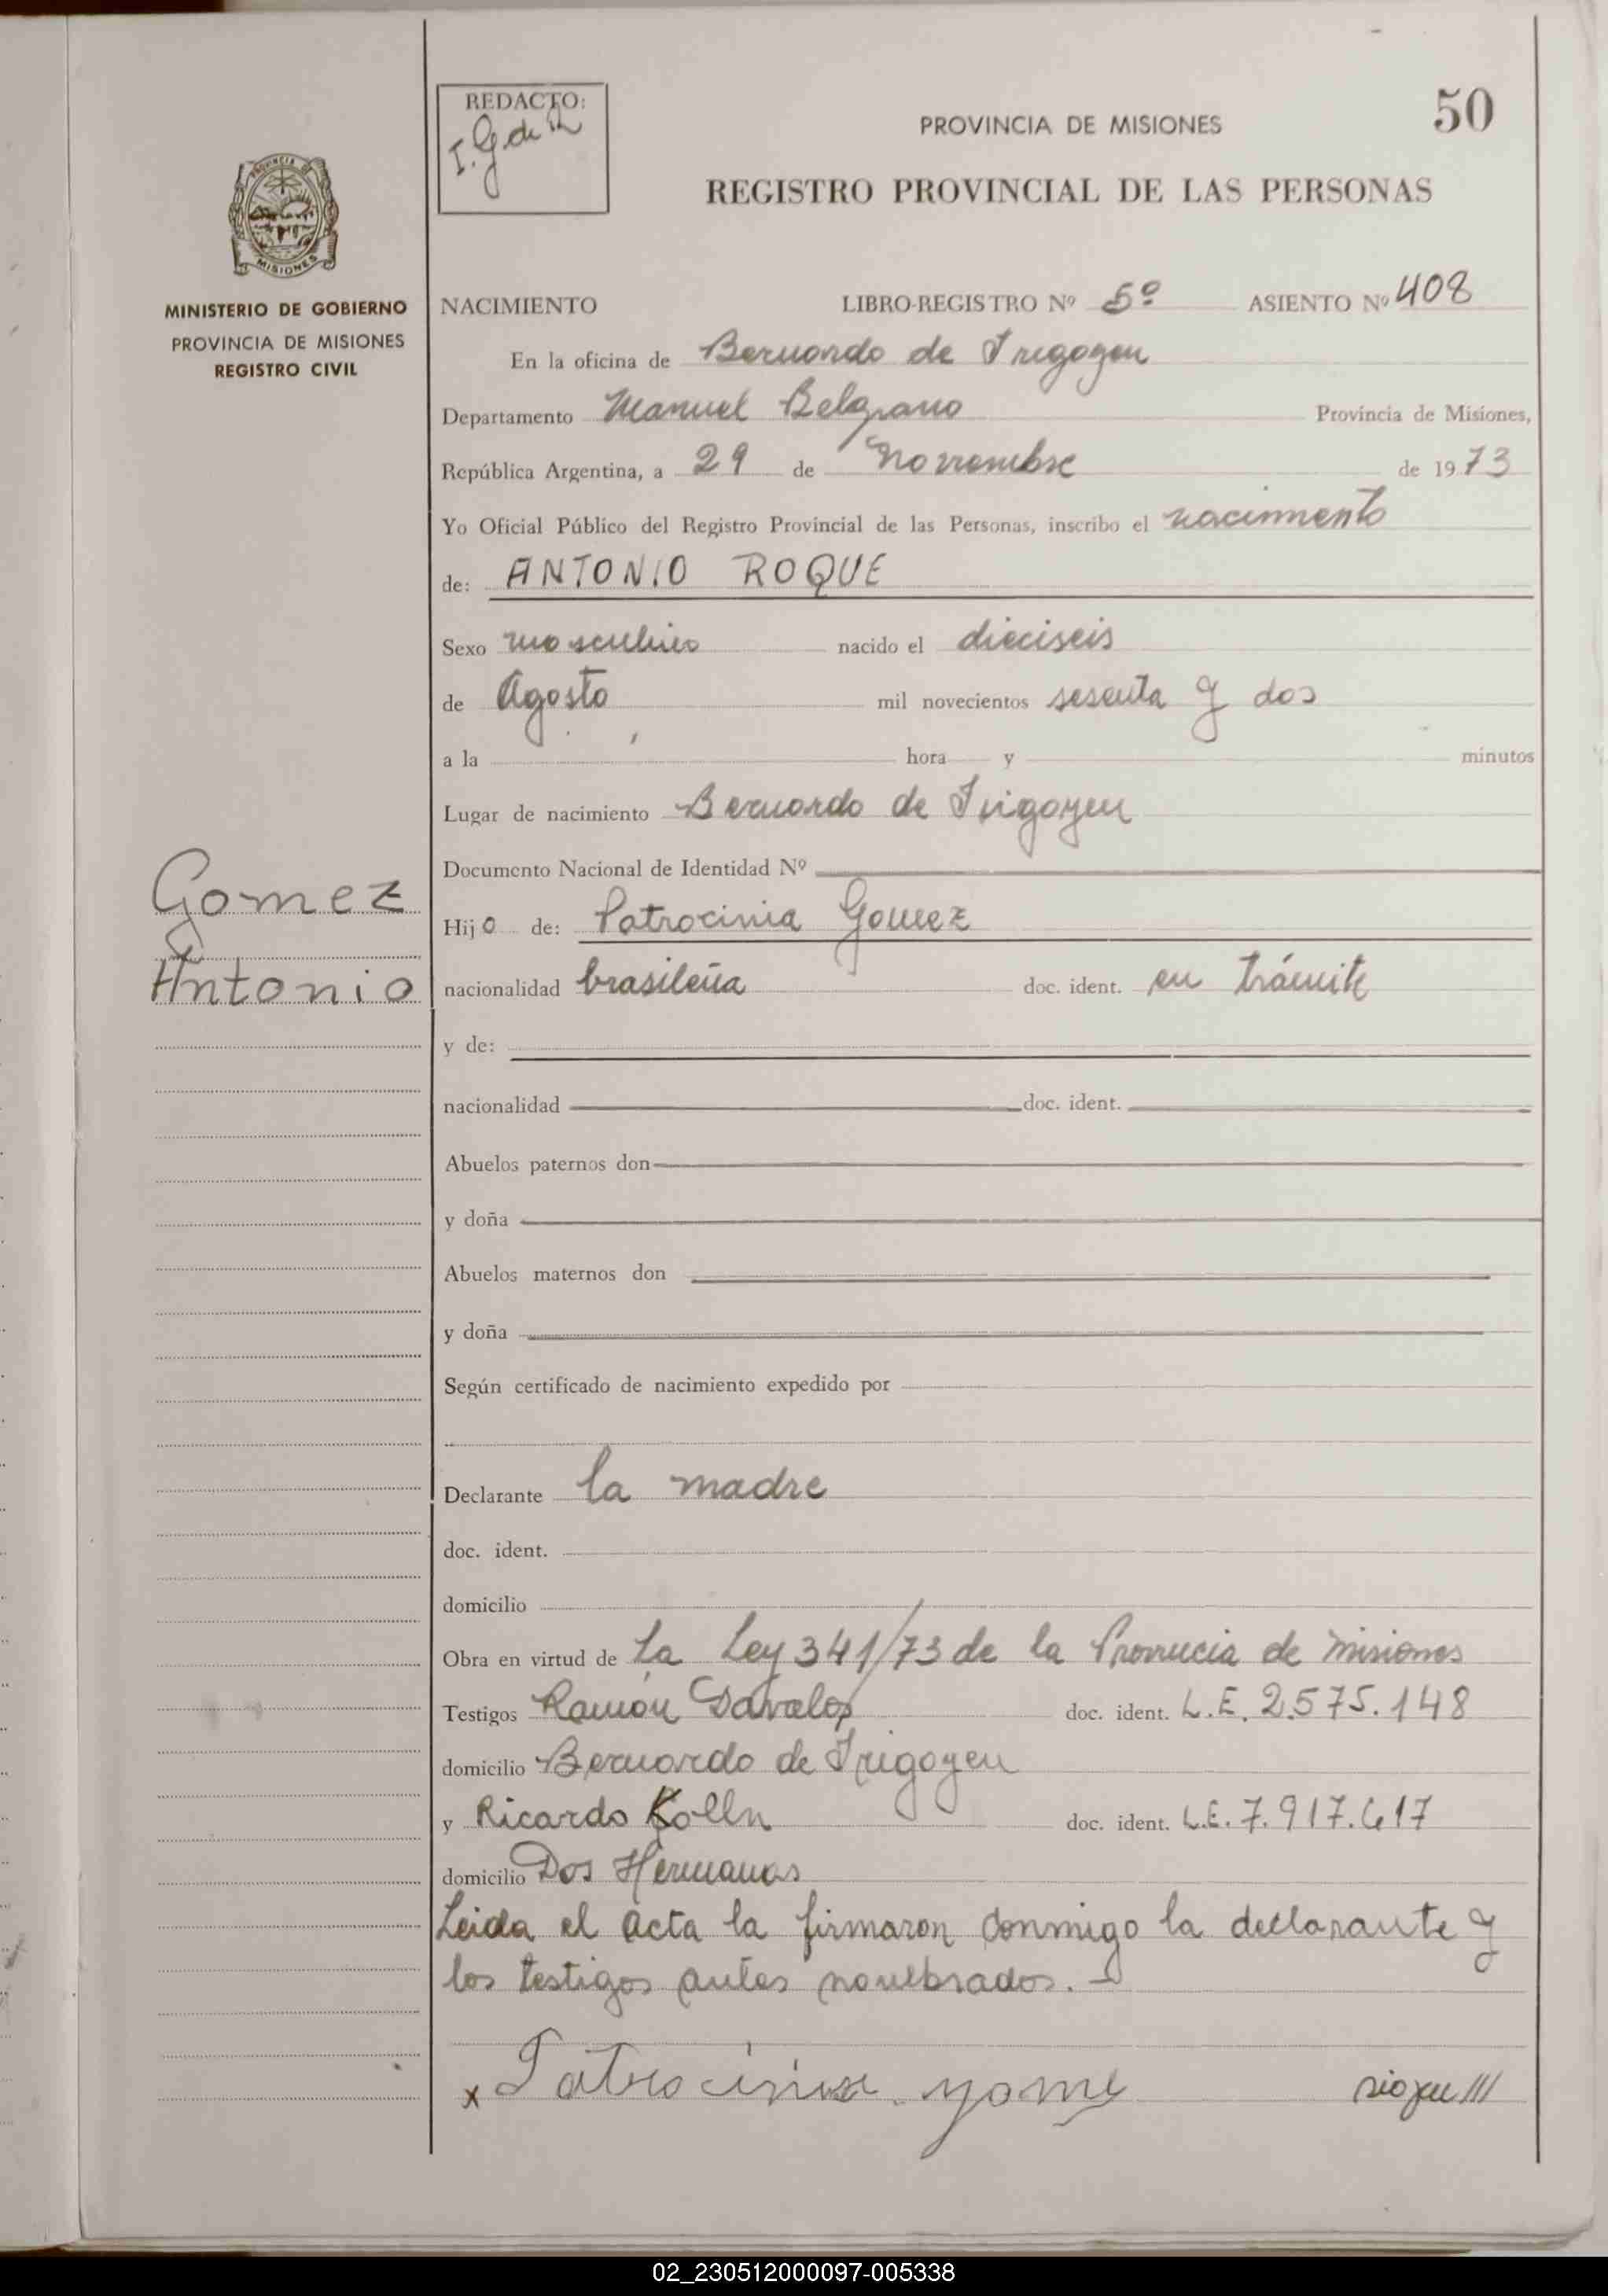 REDACTO:
I. G de R
PROVINCIA DE MISIONES
50
REGISTRO PROVINCIAL DE LAS PERSONAS
PROVINCIA DE
MISIONES
MINISTERIO DE GOBIERNO
PROVINCIA DE MISIONES
REGISTRO CIVIL
NACIMIENTO LIBRO-REGISTRO Nº 5º ASIENTO Nº 408
En la oficina de Bernardo de Irigoyen
Departamento Manuel Belgrano Provincia de Misiones,
República Argentina, a 29 de Noviembre de 1973
Yo Oficial Público del Registro Provincial de las Personas, inscribo el nacimiento
de: ANTONIO ROQUE
Sexo masculino nacido el dieciseis
de Agosto mil novecientos sesenta y dos
a la hora y minutos
Lugar de nacimiento Bernardo de Irigoyen
Documento Nacional de Identidad Nº
Gomez
Antonio
Hijo de: Patrocinia Gomez
nacionalidad brasileña doc. ident. en trámite
y de:
nacionalidad doc. ident.
Abuelos paternos don
y doña
Abuelos maternos don
y doña
Según certificado de nacimiento expedido por
Declarante la madre
doc. ident.
domicilio
Obra en virtud de La Ley 341/73 de la Provincia de Misiones
Testigos Ramón Davalos doc. ident. L.E. 2.575.148
domicilio Bernardo de Irigoyen
y Ricardo Kolln doc. ident. L.E. 7.917.617
domicilio Dos Hermanas
Leida el acta la firmaron conmigo la declarante y
los testigos antes nombrados.-
x Patrocinia gome sigue ///
02_230512000097-005338